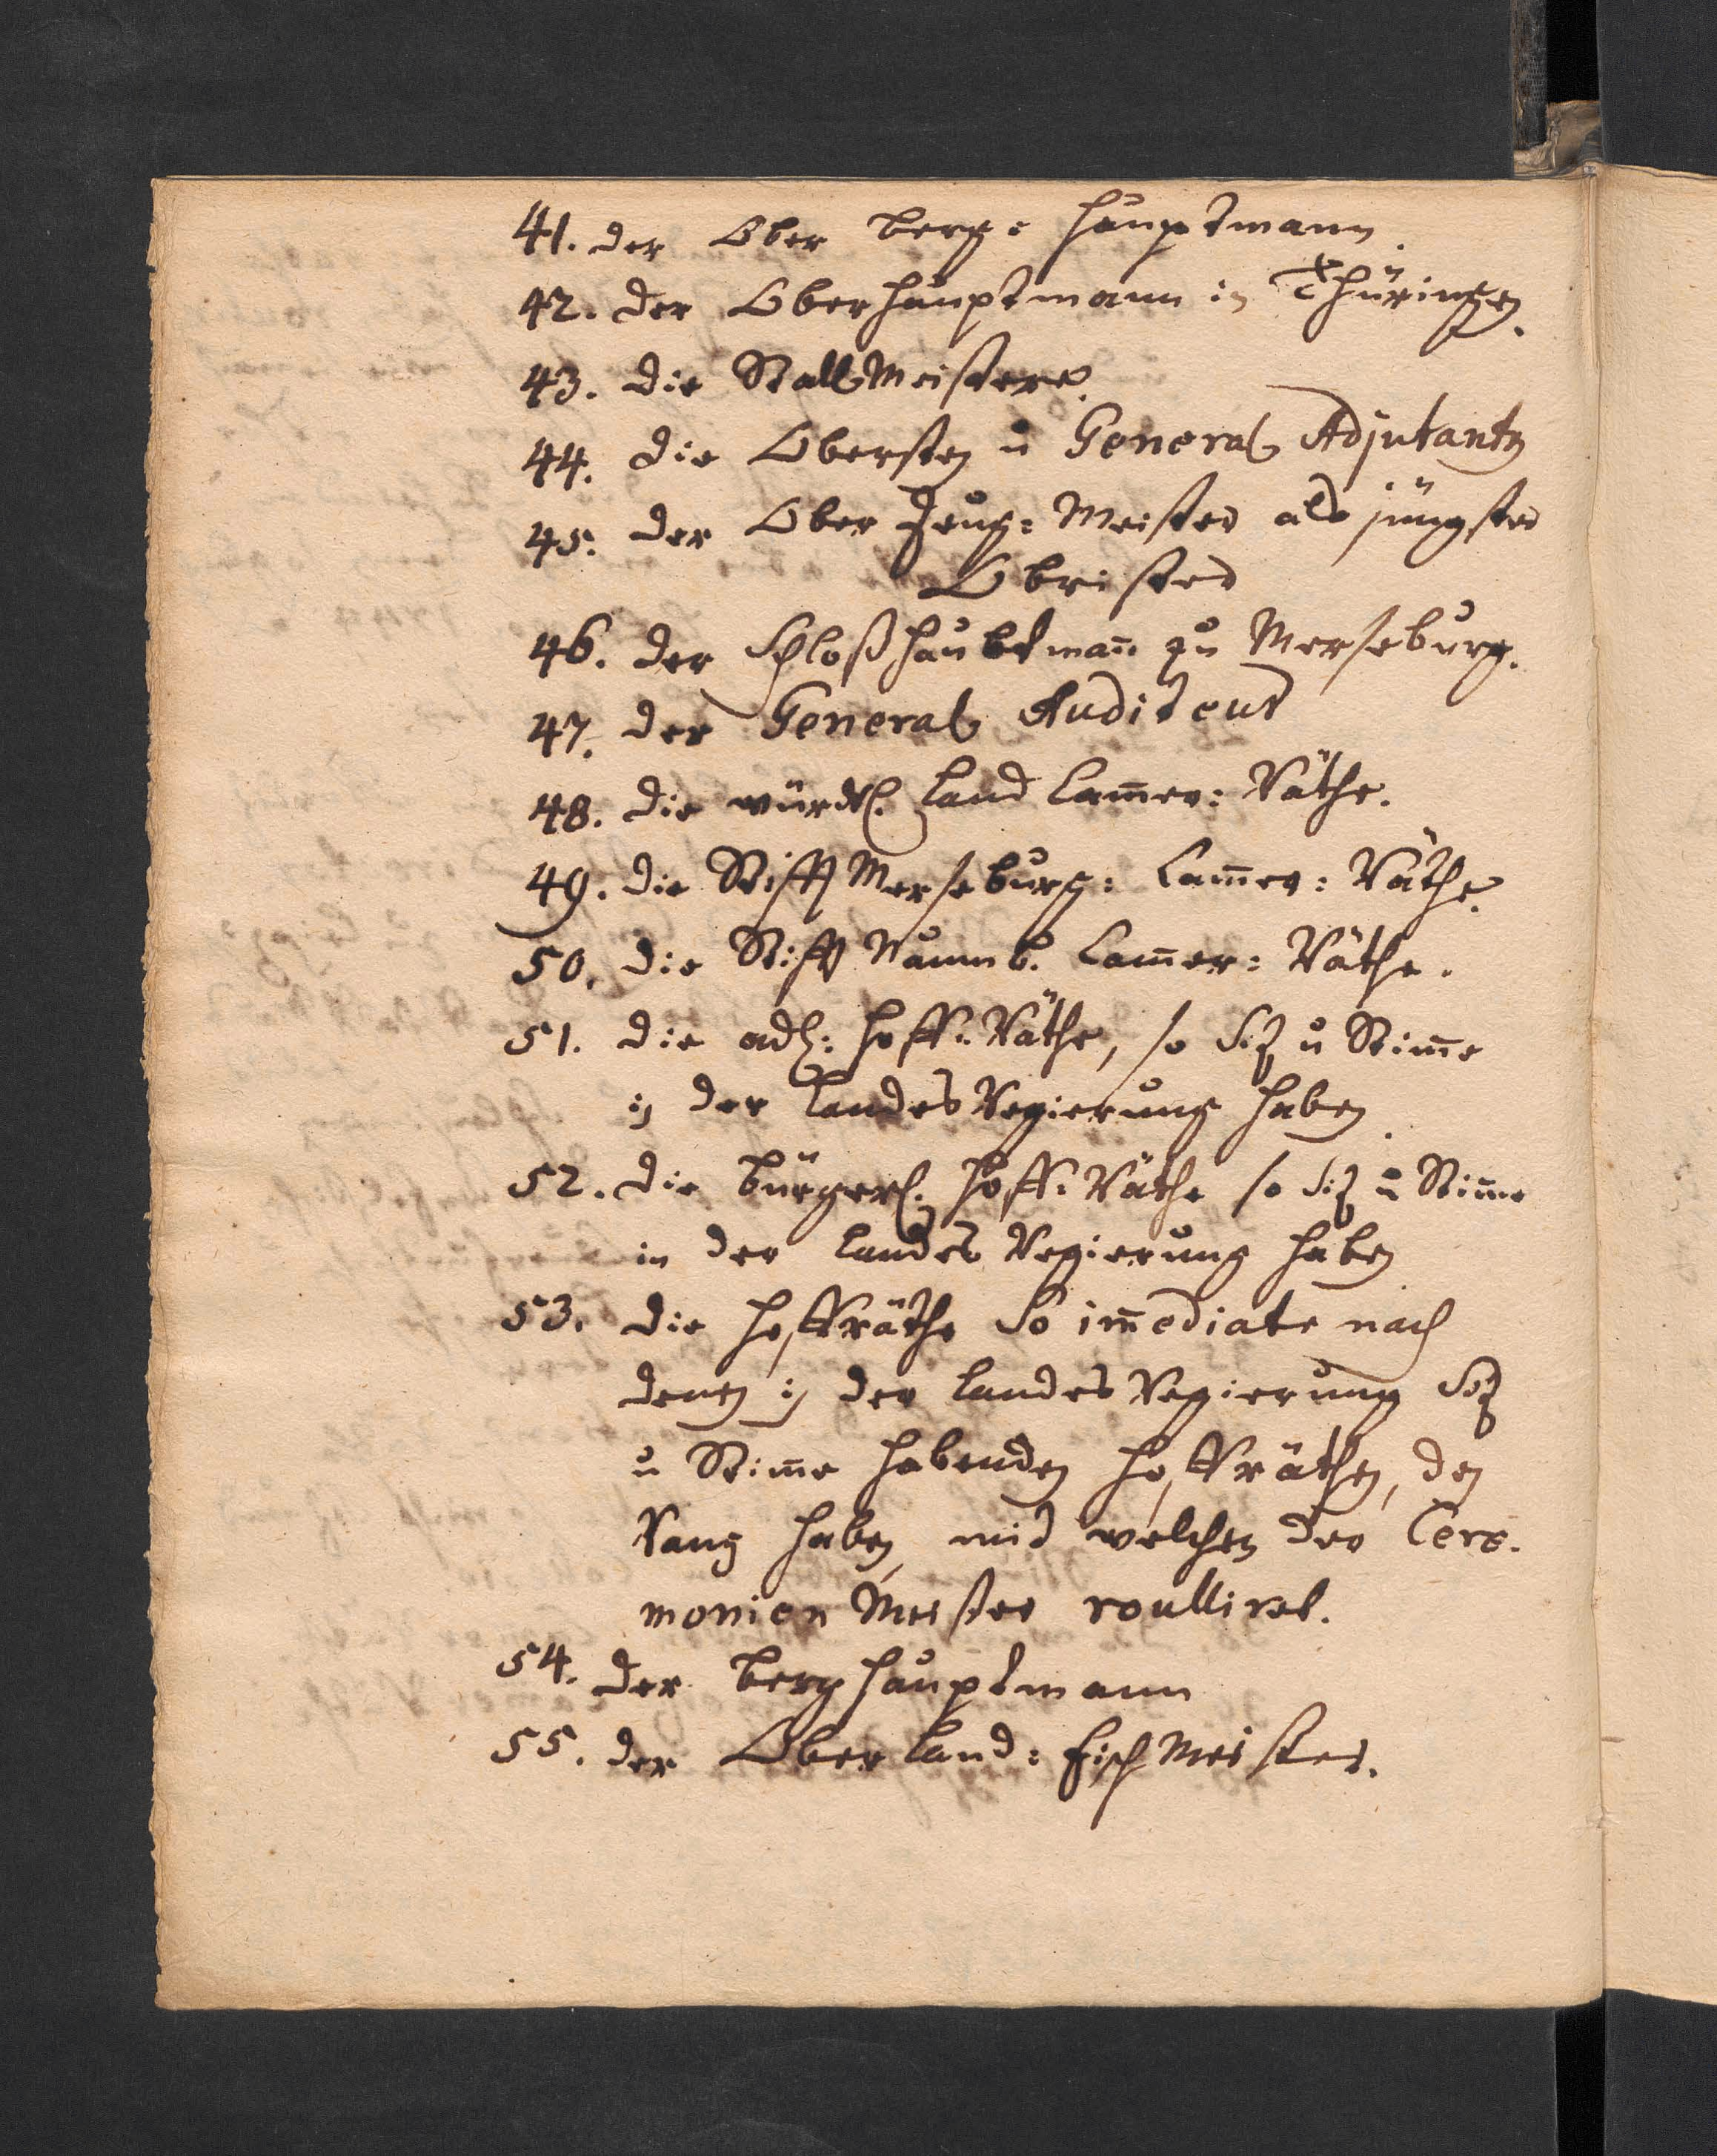 41. der Ober Berg: Hauptmann.
42. der Oberhauptmann in Thüringen.
43. die StallMeistere.
44. die Obersten u General Adjutanten
45. der Ober Zeug: Meister als jüngster
Obrister
46. der Schloßhaubtman̄ zu Merseburg.
47. der General Auditeur
48. die würckl. Land Cam̄er: Räthe.
49. die Stifft Merseburg: Cam̄er: Räthe.
50. die Stifft Naumb. Cam̄er: Räthe.
51. die adl: Hoff: Räthe, so Siz u Stim̄e
in der Landes Regierung haben.
52. die bürgerl. Hoff: Räthe so Siz u Stim̄e
in der Landes Regierung haben
53. die Hoffräthe So im̄ediate nach
denen in der Landes Regierung Siz
u Stim̄e habenden Hoffräthen, den
Rang haben, mit welchen der Cere-
monien Meister roulliret.
54. der Berghauptmann
55. der Ober Land: FischMeister.